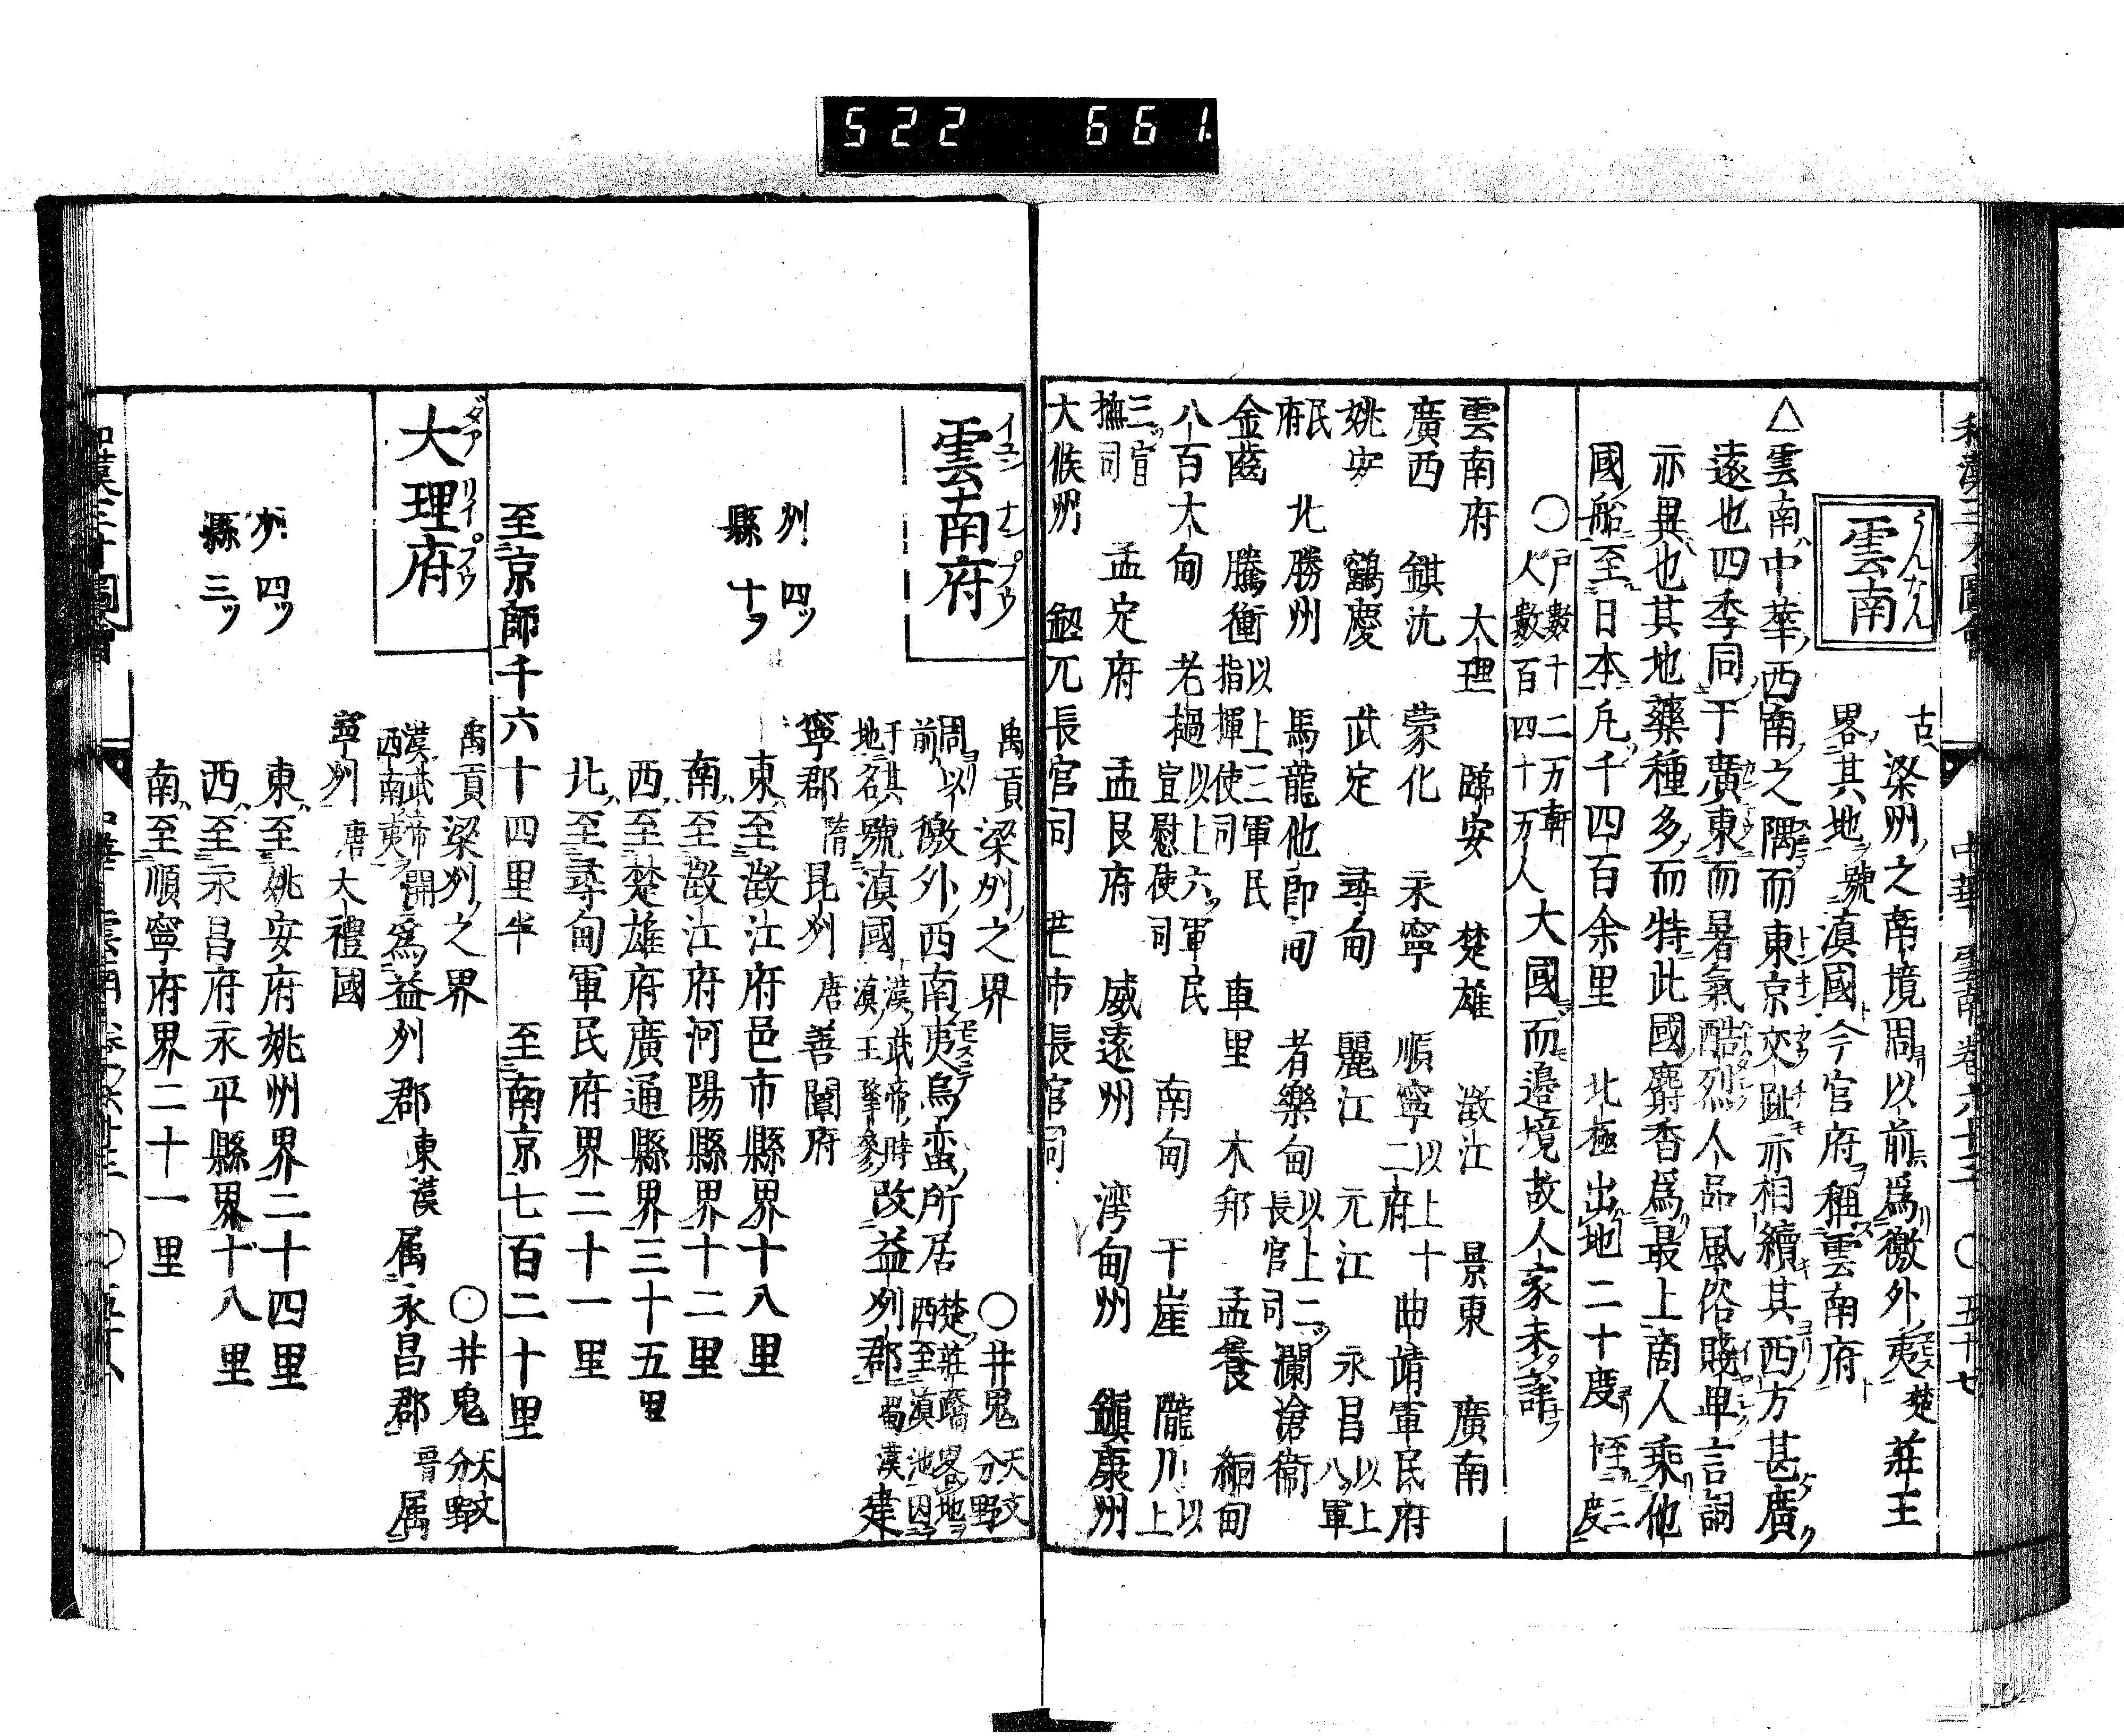 522 661
中華 雲南 巻六十三 〇 五十七
雲南
うんなん
古梁州ノ之裔境周ヨリ以前爲徼外ノ夷楚ノ莊王
畧其地ヲ號滇國ト今官府ヲ稱ス雲南府ト
△雲南ハ中華ノ西南ノ之隅而東京交趾モ亦相續其西方甚廣ク
遠也四季同于廣東而暑氣酷烈人品風俗賤卑言詞
亦異也其地藥種多ク而特此國麝香爲最上商人乘他
國ノ船至日本凡千四百余里 北極出地二十度ヨリ至三度
〇戸數十二万軒
人數百四十万人
大國而邊境故人家未詳
雲南府 大理 臨安 楚雄 澂江 景東 廣南
廣西 鎮沅 蒙化 永寧 順寧以上十二府 曲靖軍民府
姚安 鶴慶 武定 尋甸 麗江 元江 永昌以上八ツ軍
民府 北勝州 馬龍他郎甸 者樂甸以上二ツ長官司 瀾滄衞
金齒 騰衝以上三軍民指揮使司 車里 木邦 孟養 緬甸
八百大甸 老撾以上六ツ軍民宣慰使司 南甸 干崖 隴川以上
三ツ宣撫司 孟定府 孟艮府 威遠州 湾甸州 鎮康州
大侯州 鈕兀長官司 芒市長官司
雲南府
イユン ナン プウ
禹貢梁州ノ之界 〇井鬼天文分野
周ヨリ以前ハ徼外ノ西南ノ夷烏蛮ノ所居 楚ノ莊蹻畧地ヲ西至滇池因
于地名其號滇國 漢ノ武帝ノ時滇ノ王擧參 改益州郡 蜀漢建
寧郡 隋昆州 唐善闡府
州 四ツ
縣 十ヲ
東ハ至澂江府邑市縣界十八里
南ハ至澂江府河陽縣界十二里
西ハ至楚雄府廣通縣界三十五里
北ハ至尋甸軍民府界二十一里
至京師千六十四里半 至南京七百二十里
大理府
ダアリイプウ
禹貢梁州ノ之界 〇井鬼天文分野
漢ノ武帝開西南夷ヲ爲益州郡 東漢屬永昌郡 晋屬
寧州 唐大禮國
州 四ツ
縣 三ツ
東ハ至姚安府姚州界二十四里
西ハ至永昌府永平縣界十八里
南ハ至順寧府界二十一里